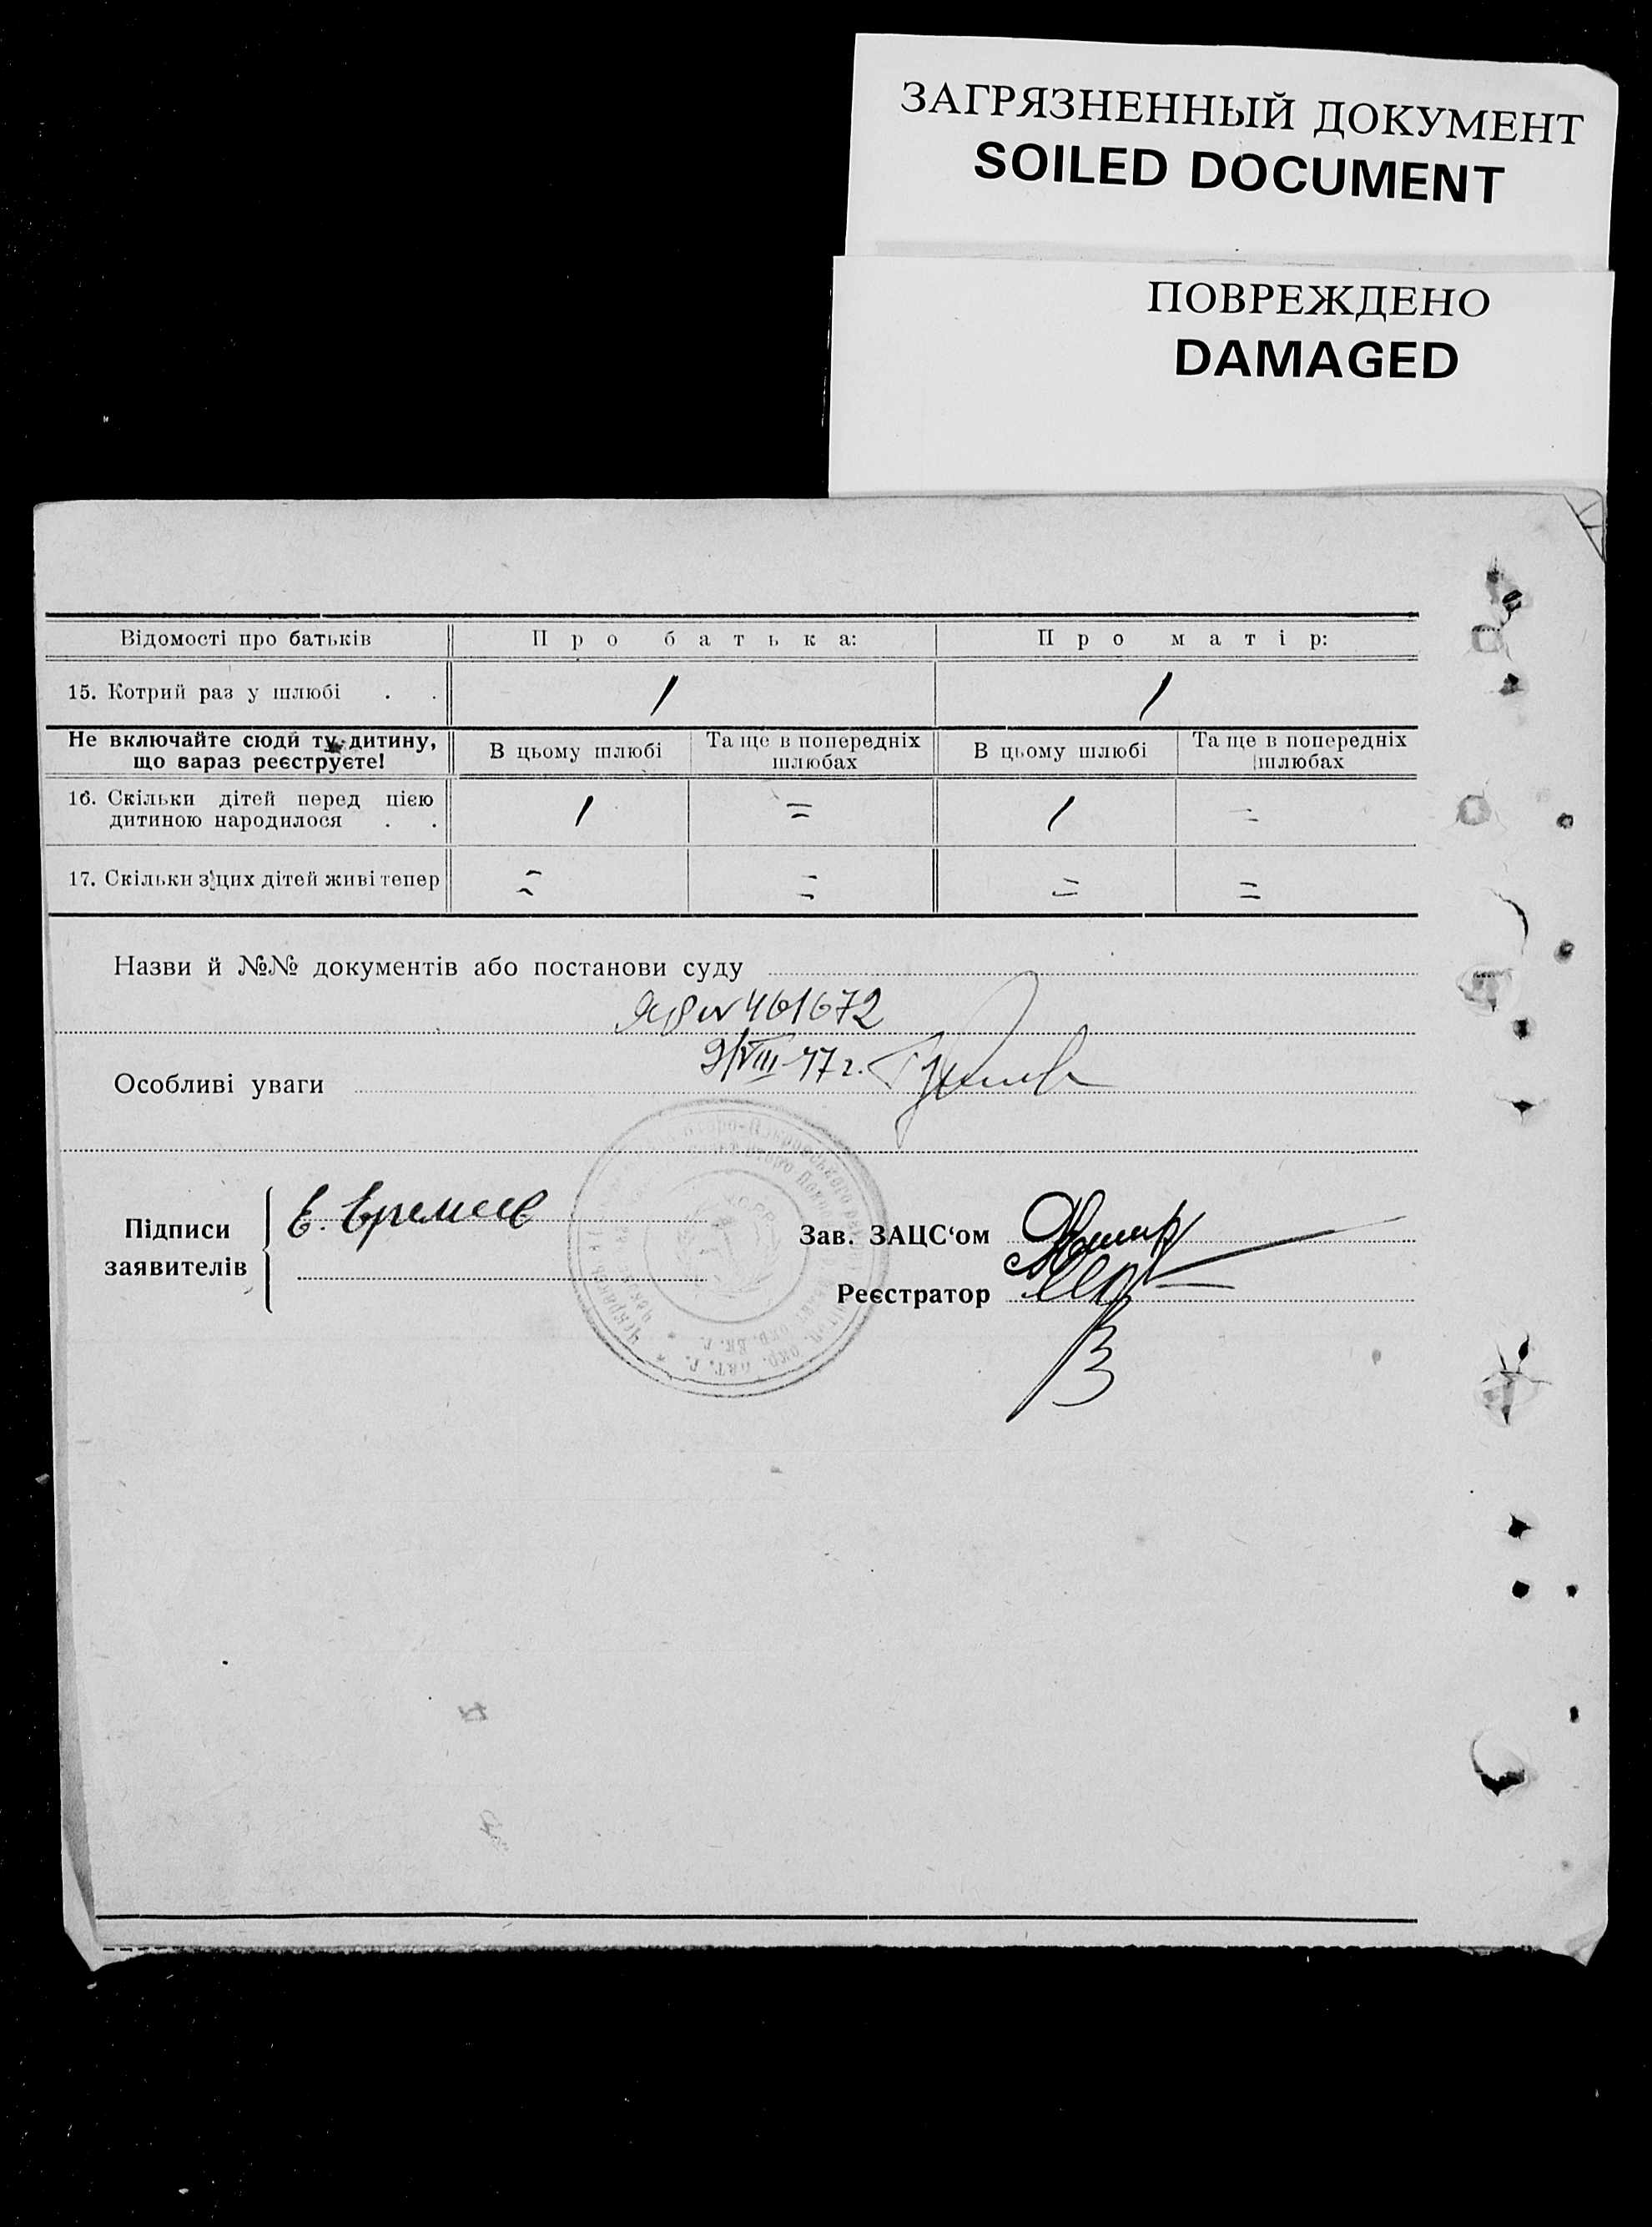 ЗАГРЯЗНЕННЫЙ ДОКУМЕНТ
SOILED DOCUMENT
ПОВРЕЖДЕНО
DAMAGED
Відомості про батьків Про батька: Про матір:
15. Котрий раз у шлюбі . . 1 1
Не включайте сюди ту дитину, що вараз реєструєте! В цьому шлюбі Та ще в попередніх шлюбах В цьому шлюбі Та ще в попередніх шлюбах
16. Скільки дітей перед цією
дитиною народилося . . 1 = 1 =
17. Скільки з цих дітей живі тепер = = = =
Назви й №№ документів або постанови суду
461672
9/VIII-47 г.
Особливі уваги
Підписи
заявителів
Е. Еремеев
Зав. ЗАЦС‘ом
Реєстратор